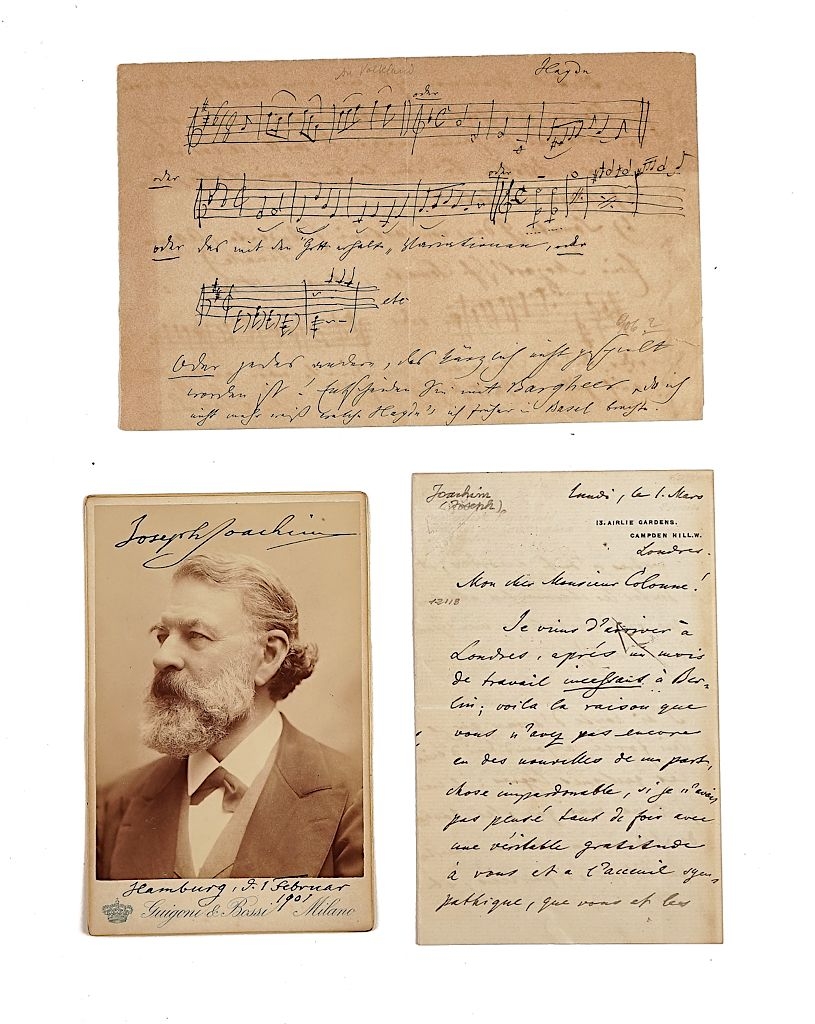 An Volkland
Haydn
oder
oder
oder
oder das mit den "Gott erhalte" Variationen, oder
etc
Oder jedes andere, das kürzlich nicht gespielt
worden ist! Entscheiden Sie mit Bargheer, da ich
nicht mehr weiß welche Haydn's ich früher in Basel brachte.
Joseph Joachim
Hamburg, d. 1 Februar
1901
Guigoni & Bossi Milano
Joachim
(Joseph)
Lundi, le 1. Mars
13, AIRLIE GARDENS.
CAMPDEN HILL.W.
Londres.
Mon cher Monsieur Colonne!
12118
Je viens d'arriver à
Londres, après un mois
de travail incessant à Ber-
lin; voila la raison que
vous n'avez pas encore
eu des nouvelles de ma part,
chose impardonable, si je n'avais
pas pensé tant de fois avec
une véritable gratitude
à vous et a l'acceuil sym-
pathique, que vous et les